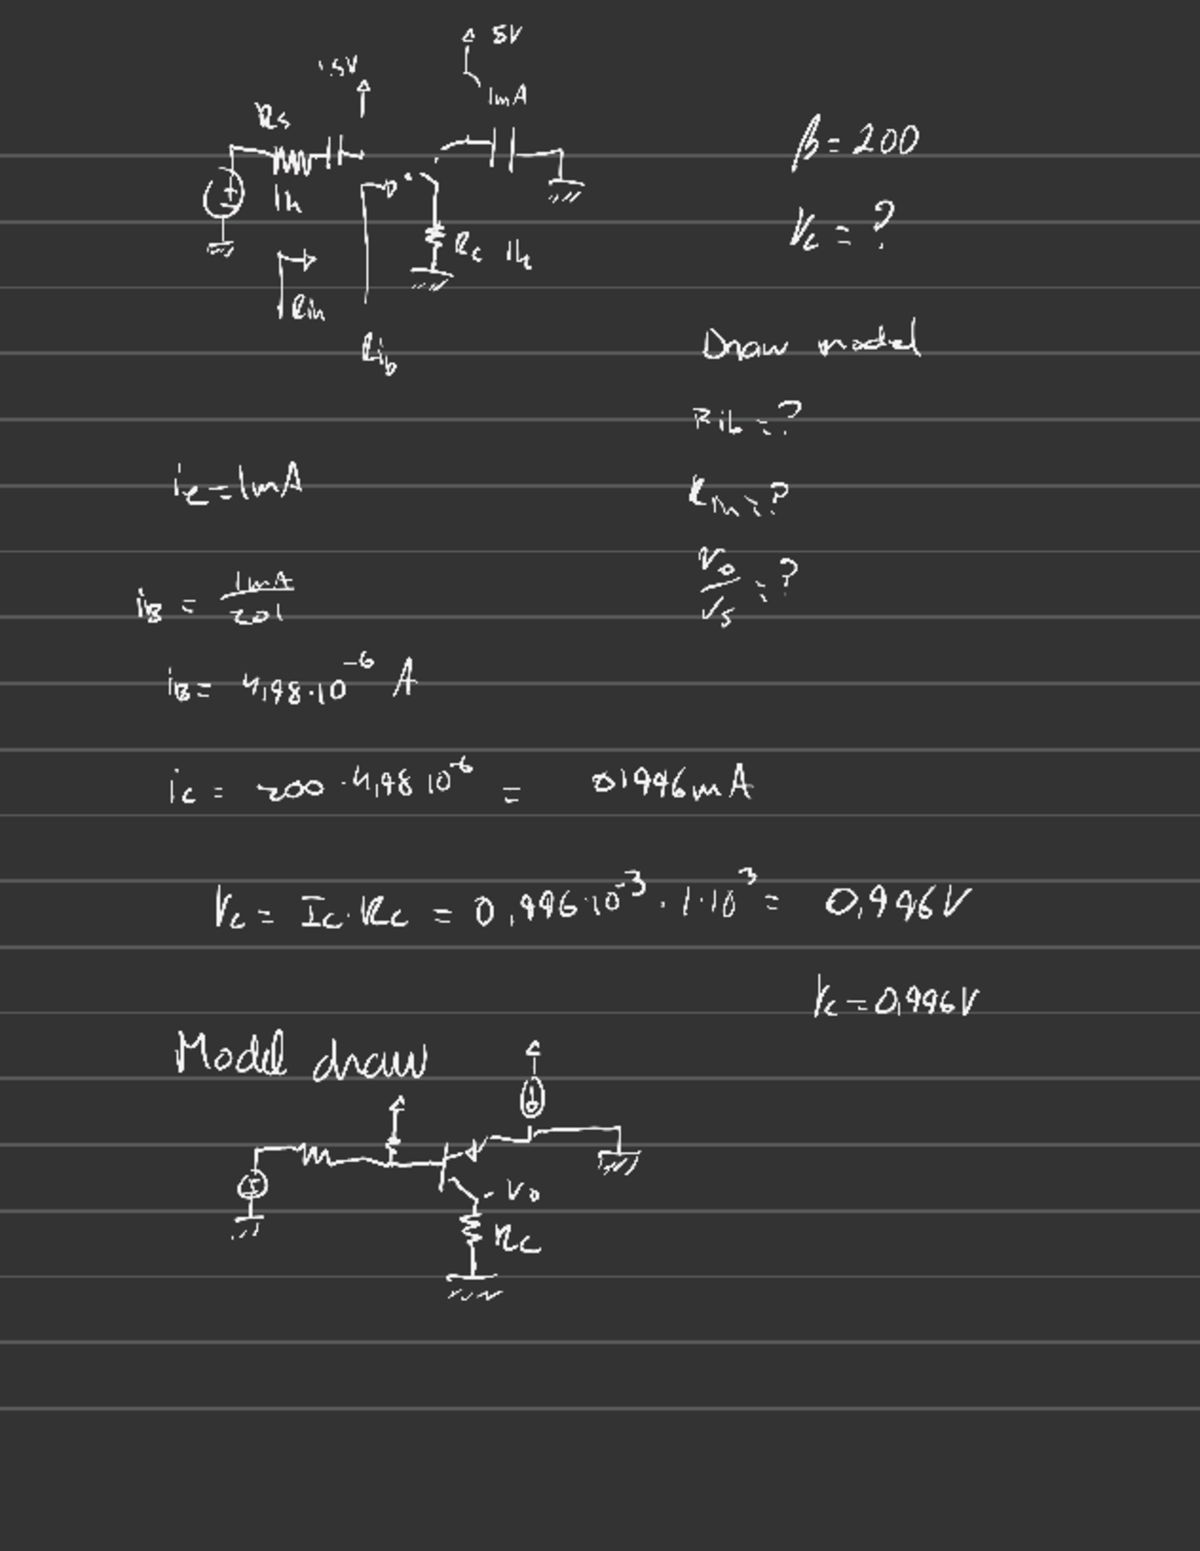 5V
1.5V
1mA
Rs
1k
Rc 1k
Rin
Rib
β = 200
Vc = ?
Draw model
Rib = ?
Rin = ?
Vo/Vs = ?
ie = 1mA
iB = 1mA/201
iB = 4,98·10^-6 A
ic = 200 · 4,98 10^-6 = 0,996mA
Vc = Ic·Rc = 0,996·10^-3 · 1·10^3 = 0,996V
Vc = 0,996V
Model draw
- Vo
Rc